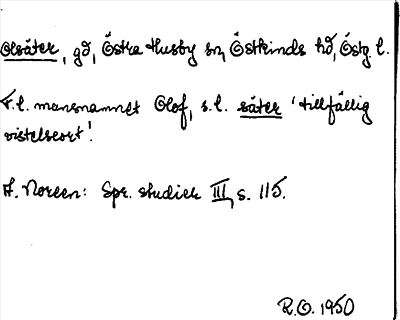 Olsäter, gd, Östra Husby sn, Östkinds hd, Östg. l.
F.l. mansnamnet Olof, s.l. säter 'tillfällig
vistelseort'.
A. Noreen: Spr. studier III, s. 115.
R.O. 1950